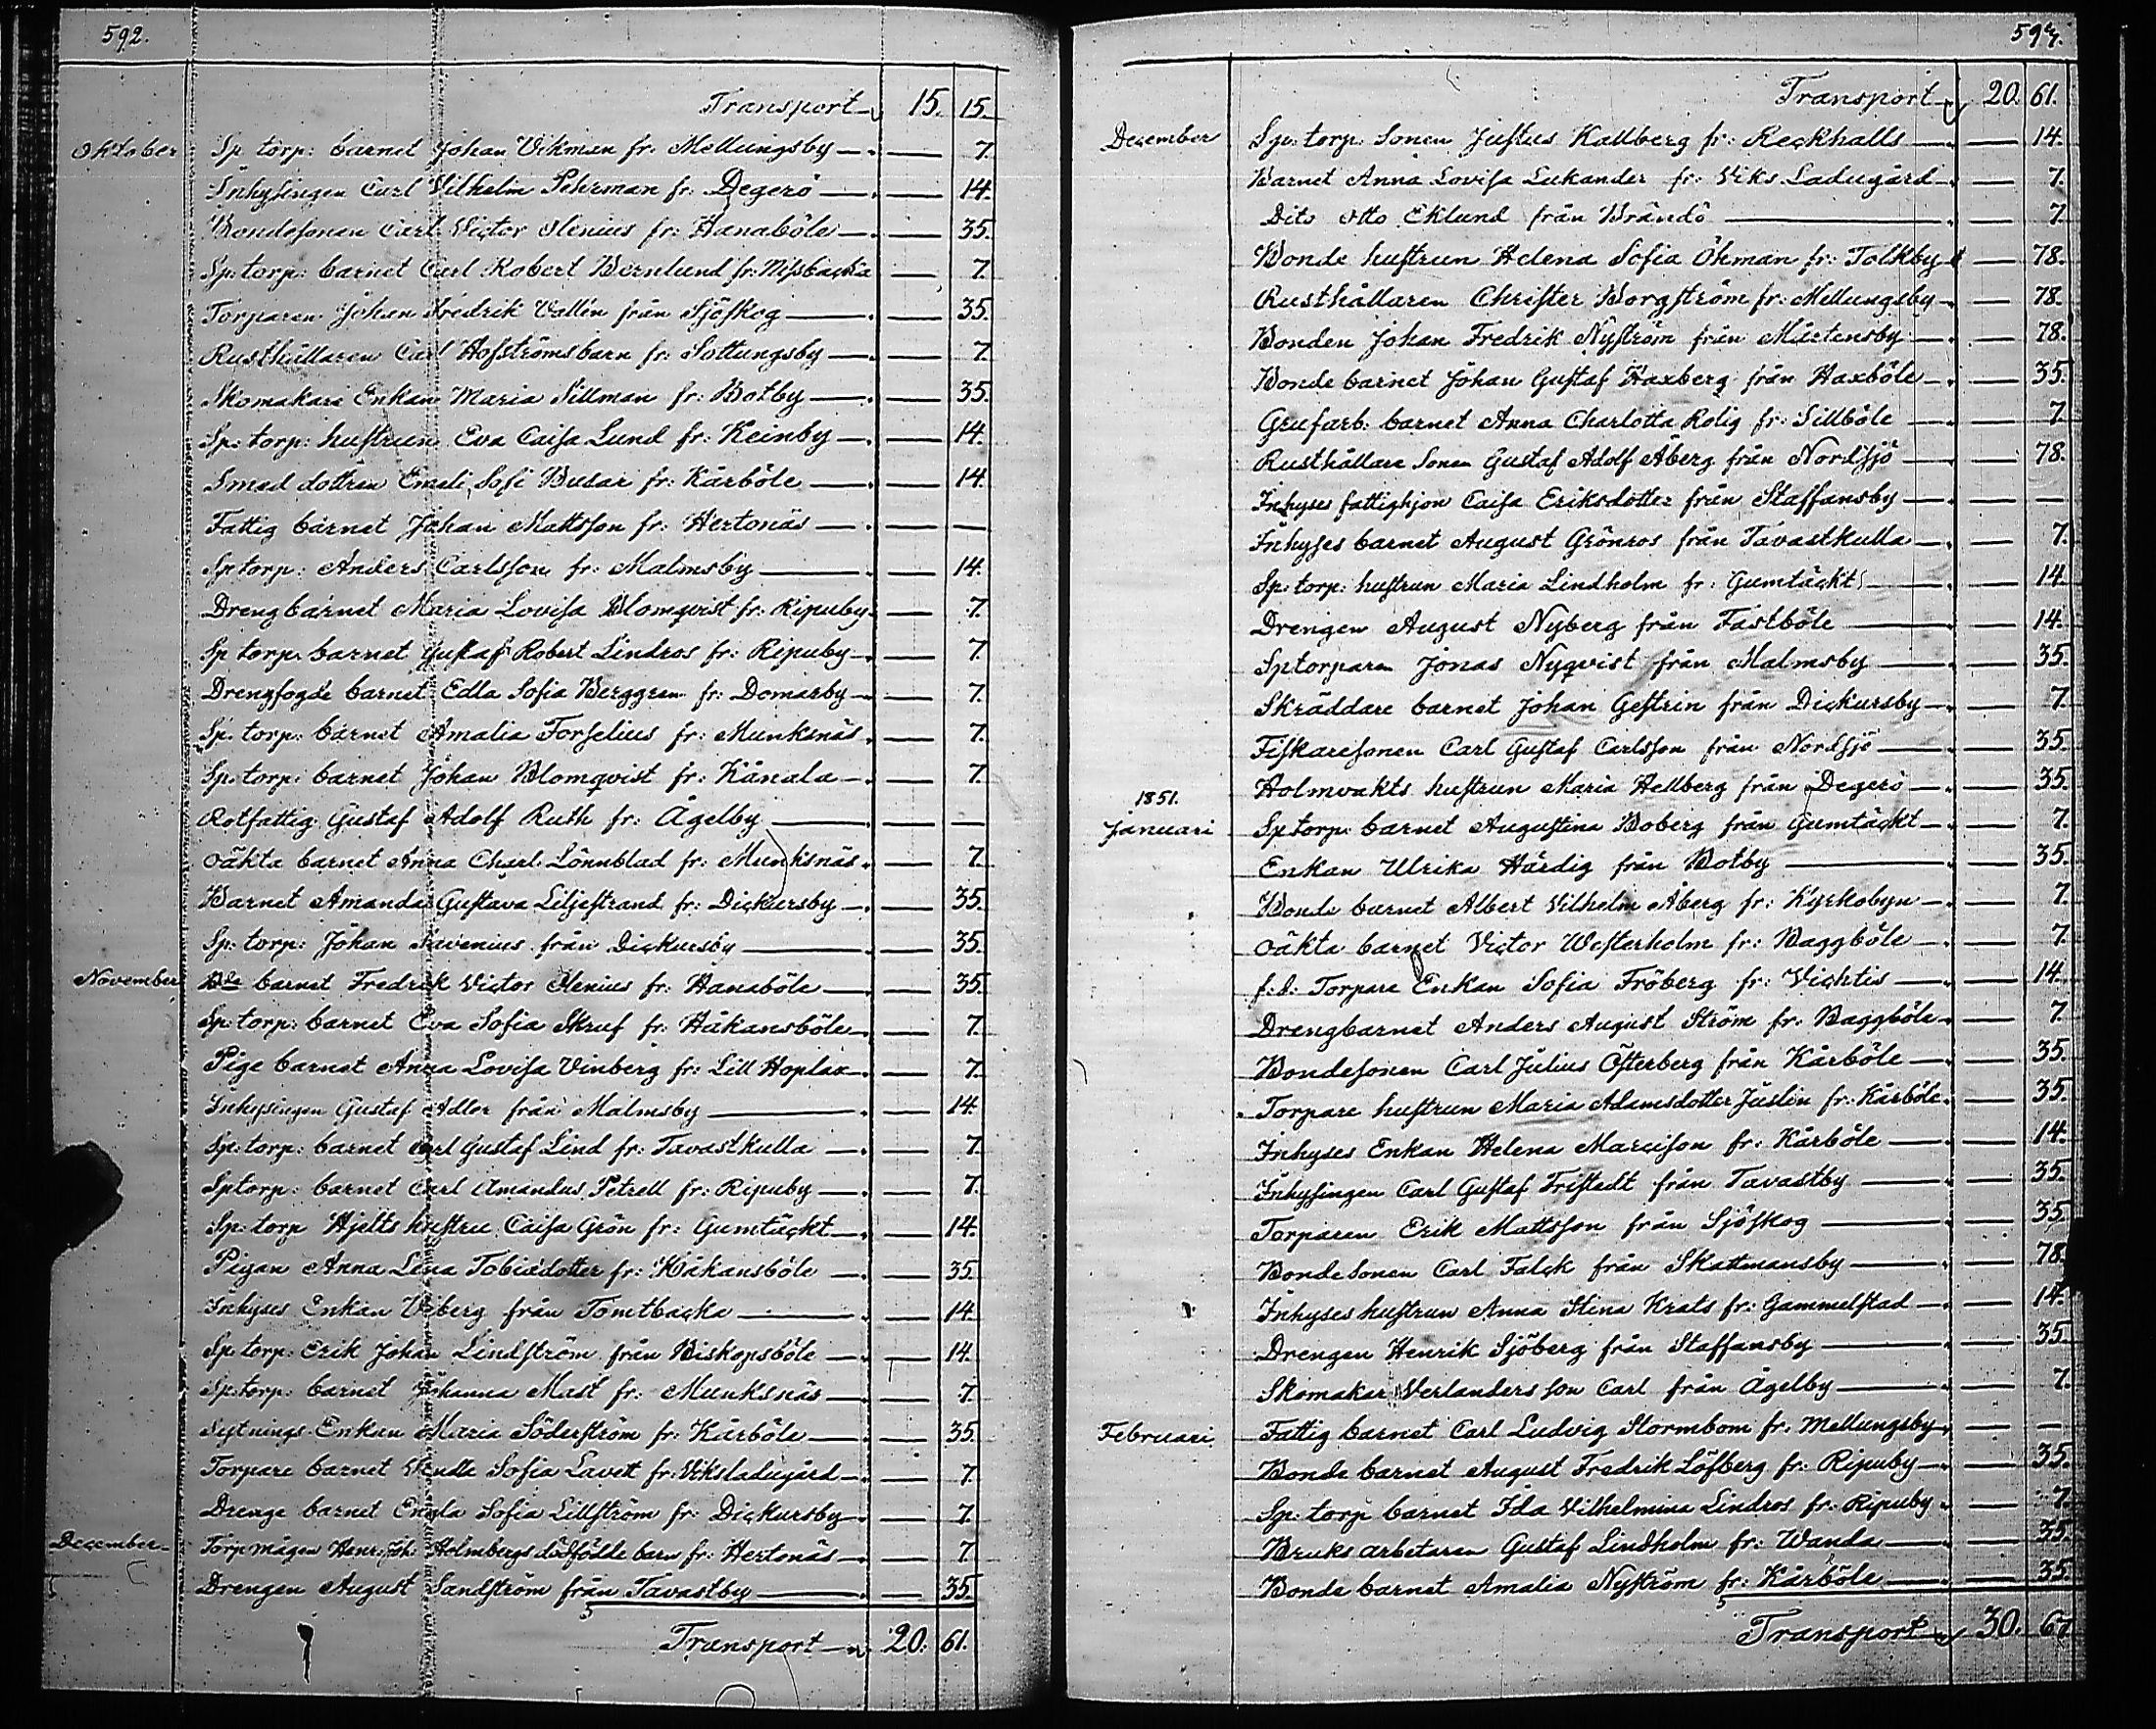 592.
Transport 15. 15.
Oktober Sp. torp: barnet Johan Vikman fr: Mellungsby — 7.
Inhysingen Carl Vilhelm Pehrman fr: Degerö — 14.
Bondesonen Carl Victor Olenius fr: Hanaböle — 35.
Sp: torp: barnet Carl Robert Bernlund fr: Nissbacka — 7.
Torparen Johan Fredrik Vallén från Sjöskog — 35.
Rusthållaren Carl Hofströms barn fr: Sottungsby — 7.
Skomakare Enkan Maria Sillman fr: Botby — 35.
Sp: torp: hustrun Eva Caisa Lund fr: Keinby — 14.
Smed dottren Emeli Sofi Busar fr: Kårböle — 14.
Fattig barnet Johan Mattsson fr: Hertonäs — —
Sp torp: Anders Carlsson fr: Malmsby — 14.
Drengbarnet Maria Lovisa Blomqvist fr: Ripuby — 7.
Sp torp. barnet Gustaf Robert Lindros fr: Ripuby — 7.
Drengfogde barnet Edla Sofia Berggren fr: Domarby — 7.
Sp. torp: barnet Amalia Forselius fr: Munksnäs — 7.
Sp: torp: barnet Johan Blomqvist fr: Kånala — 7.
Rotfattig Gustaf Adolf Ruth fr: Ågelby — —
oäkta barnet Anna Charl. Lönnblad fr: Munksnäs — 7.
Barnet Amanda Gustava Liljestrand fr: Dickursby — 35.
Sp: torp: Johan Savenius från Dickursby — 35.
November Bde barnet Fredrik Victor Olenius fr: Hanaböle — 35.
Sp: torp: barnet Eva Sofia Skruf fr: Håkansböle — 7.
Pige barnet Anna Lovisa Vinberg fr: Lill Hoplax — 7.
Inhysingen Gustaf Adler från Malmsby — 14.
Sp: torp: barnet Carl Gustaf Lind fr: Tavastkulla — 7.
Sp torp: barnet Carl Amandus Petrell fr: Ripuby — 7.
Sp: torp Hjelts hustru Caisa Grön fr: Gumtäckt — 14.
Pigan Anna Lena Tobiædotter fr: Håkansböle — 35.
Inhyses Enkan Viberg från Tomtbacka — 14.
Sp torp: Erik Johan Lindström från Biskopsböle — 14.
Sp: torp: barnet Johanna Mast fr: Munksnäs — 7.
Sytnings Enkan Maria Söderström fr: Kårböle — 35.
Torpare barnet Vendla Sofia Lavett fr: Viksladugård — 7.
Drenge barnet Emla Sofia Lillström fr: Dickursby — 7.
December Torp mågen Henr: Joh: Holmbergs dödfödde barn fr: Hertonäs — 7.
Drengen August Sandström från Tavastby — 35.
Transport 20. 61.
Transport 20. 61.
December Sp: torp: Sonen Justus Kallberg fr: Reckhalls — 14.
Barnet Anna Lovisa Lukander fr: Viks Ladugård — 7.
Dito Otto Eklund från Brändö — 7.
Bonde hustrun Helena Sofia Öhman fr: Tolkby — 78.
Rusthållaren Christer Borgström fr: Mellungsby — 78.
Bonden Johan Fredrik Nyström från Mårtensby — 78.
Bonde barnet Johan Gustaf Haxberg från Haxböle — 35.
Grufarb. barnet Anna Charlotta Rolig fr: Sillböle — 7.
Rusthållare Sonen Gustaf Adolf Åberg från Nordsjö — 78.
Inhyses fattighjon Caisa Eriksdotter från Staffansby — —
Inhyses barnet August Grönros från Tavastkulla — 7.
Sp: torp: hustrun Maria Lindholm fr: Gumtäckt — 14.
Drengen August Nyberg från Fastböle — 14.
Sptorparen Jonas Nyqvist från Malmsby — 35.
Skräddare barnet Johan Gestrin från Dickursby — 7.
Fiskaresonen Carl Gustaf Carlsson från Nordsjö — 35.
Holmvakts hustrun Maria Hellberg från Degerö — 35.
1851.
Januari Sp torp: barnet Augustina Boberg från Gumtäckt — 7.
Enkan Ulrika Härdig från Botby — 35.
Bonde barnet Albert Vilhelm Åberg fr: Kyrkobyn — 7.
oäkta barnet Victor Westerholm fr: Baggböle — 7.
f: d: Torpare Enkan Sofia Fröberg fr: Vichtis — 14.
Drengbarnet Anders August Ström fr: Baggböle — 7.
Bondesonen Carl Julius Österberg från Kårböle — 35.
Torpare hustrun Maria Adamsdotter Juslin fr: Kårböle — 35.
Inhyses Enkan Helena Marcison fr: Kårböle — 14.
Inhysingen Carl Gustaf Fristedt från Tavastby — 35.
Torparen Erik Mattsson från Sjöskog — 35.
Bondesonen Carl Falck från Skattmansby — 78.
Inhyses hustrun Anna Stina Krats fr: Gammelstad — 14.
Drengen Henrik Sjöberg från Staffansby — 35.
Skomakar Verlanders son Carl från Ågelby — 7.
Februari Fattig barnet Carl Ludvig Stormbom fr: Mellungsby — —
Bonde barnet August Fredrik Löfberg fr: Ripuby — 35.
Sp: torp barnet Ida Vilhelmina Lindros fr: Ripuby — 7.
Bruks arbetaren Gustaf Lindholm fr: Wanda — 35.
Bonde barnet Amalia Nyström fr: Kårböle — 35.
Transport 30. 67